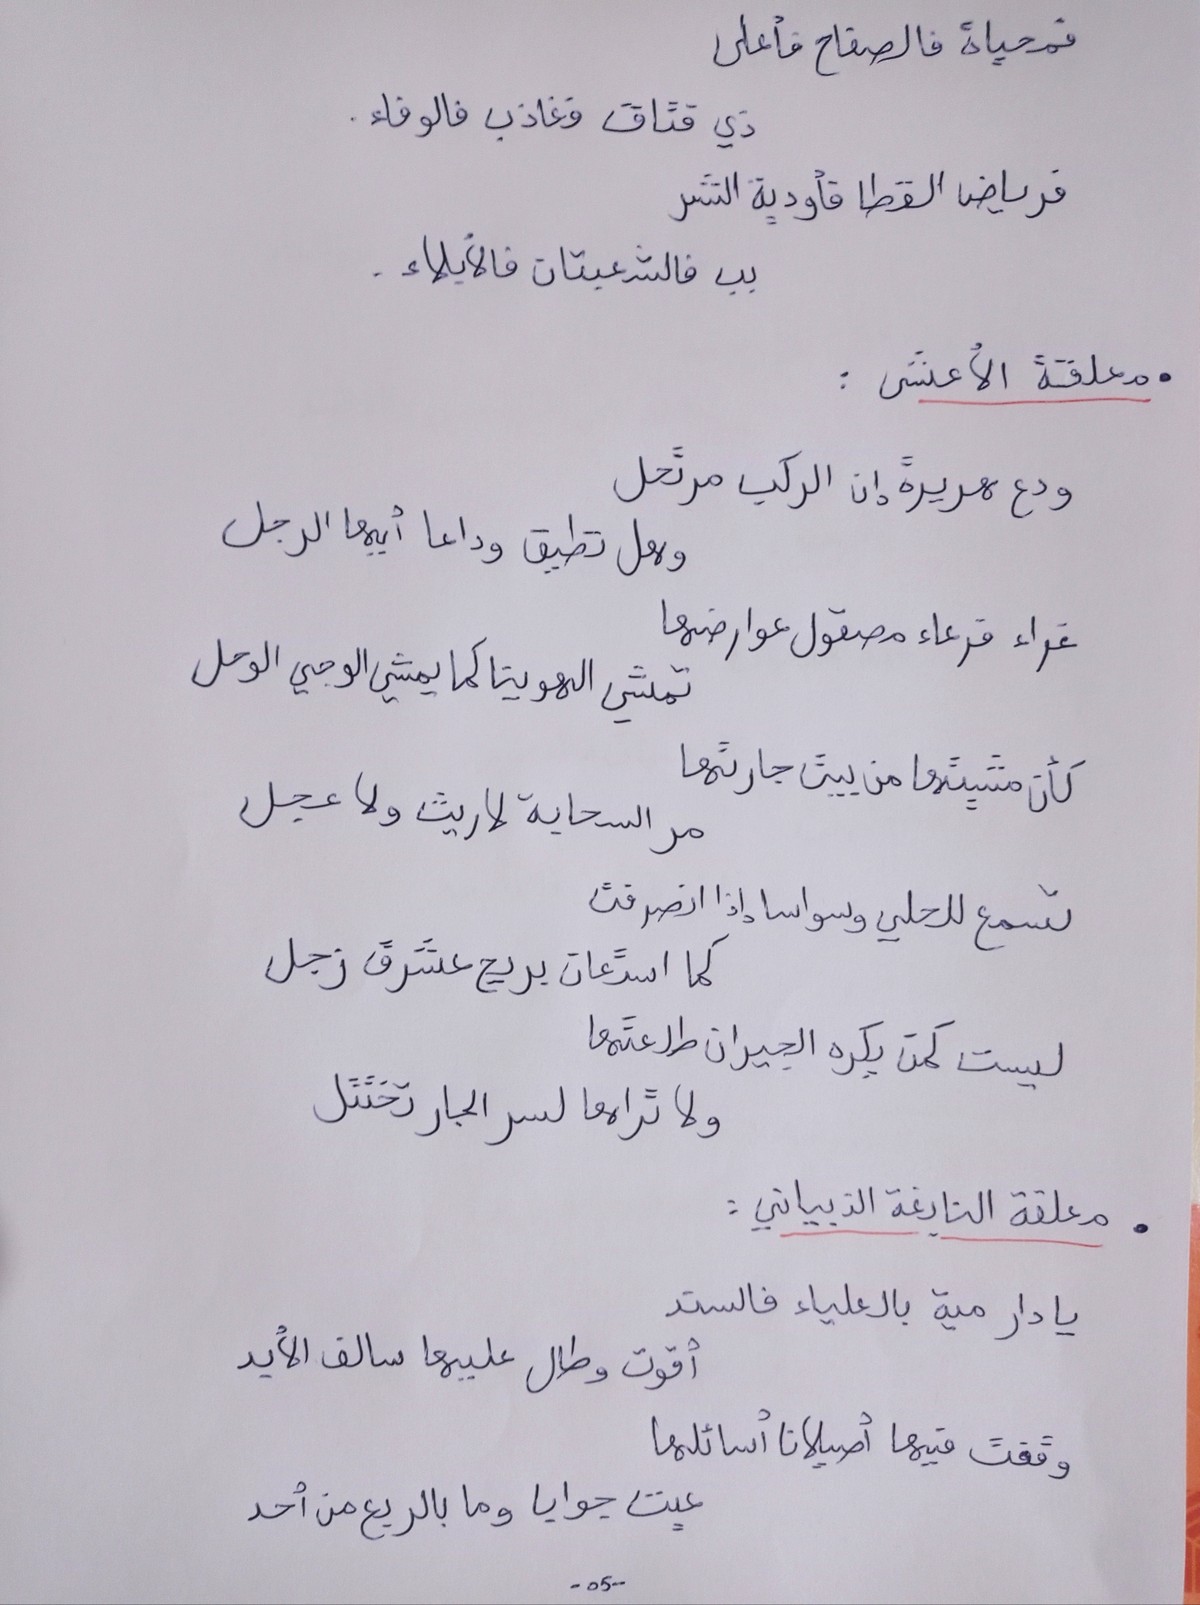 فمحياة فالصفاح فأعلى
ذي فتاق فغاذب فالوفاء .
فرياض القطا فأودية الشر
بب فالشعبتان فالأبلاء .
• معلقة الأعشى :
ودع هريرة إن الركب مرتحل
وهل تطيق وداعا أيها الرجل
غراء فرعاء مصقول عوارضها
تمشي الهوينا كما يمشي الوجي الوحل
كأن مشيتها من بيت جارتها
مر السحابة لا ريث ولا عجل
تسمع للحلي وسواسا إذا انصرفت
كما استعان بريح عشرق زجل
ليست كمن يكره الجيران طلعتها
ولا تراها لسر الجار تختتل
• معلقة النابغة الذبياني :
يا دار مية بالعلياء فالسند
أقوت وطال عليها سالف الأبد
وقفت فيها أصيلانا أسائلها
عيت جوابا وما بالربع من أحد
-05-